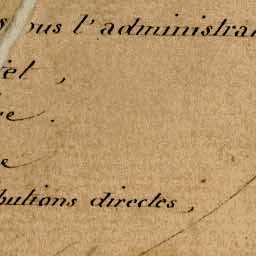 sous l'administra
et,
e.
e
butions directes,